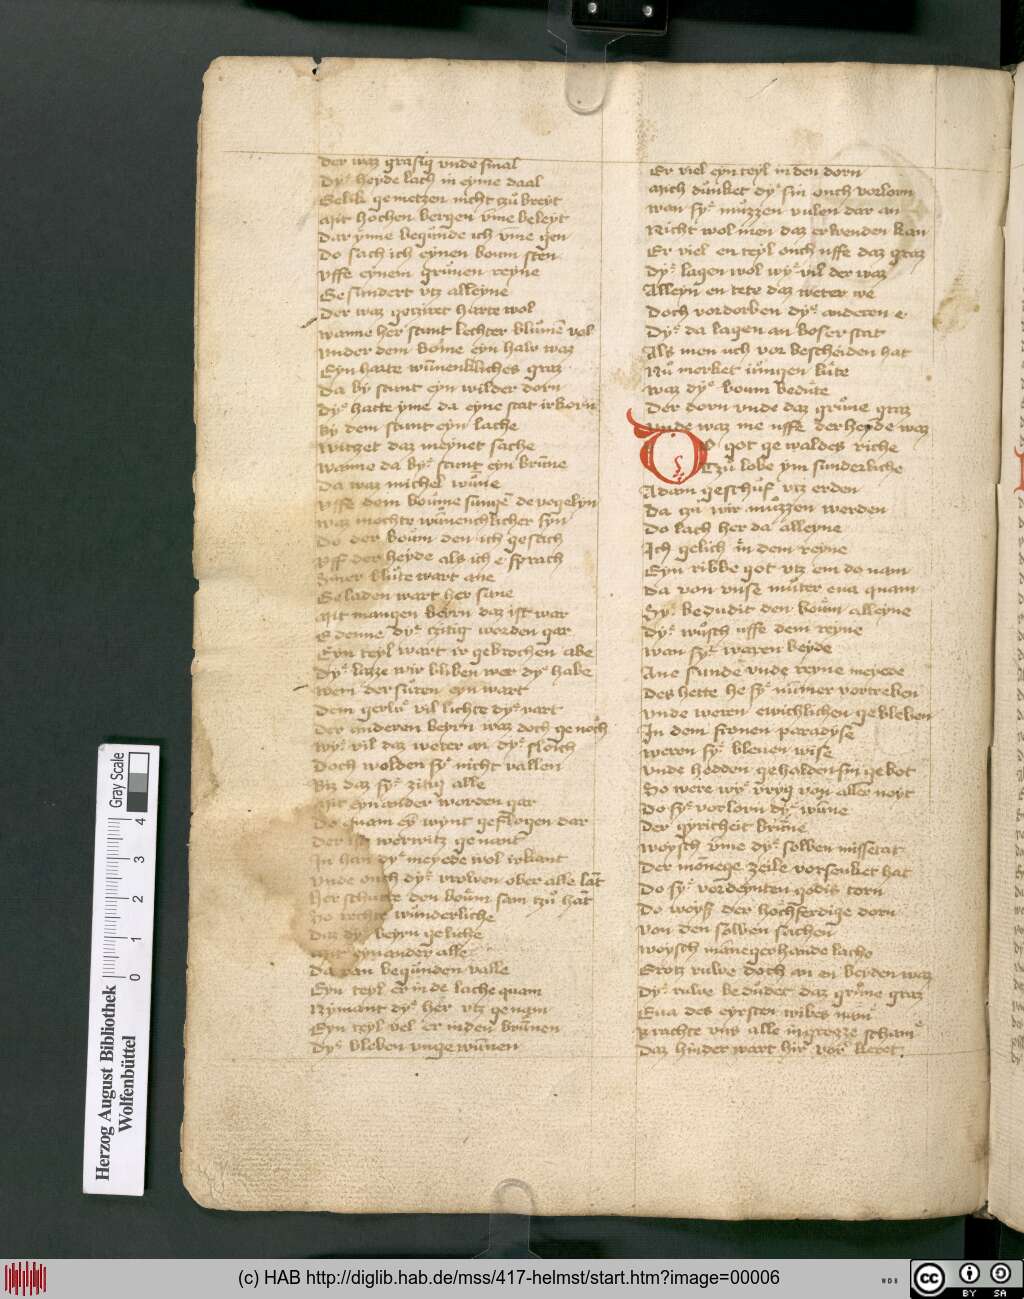 Der waz grasig vnde smal
Dyͤ heyde lach in eyme daal
Selik gemetzen nicht tzuͦ breyt
Mit hochen bergen vm̄e beleyt
Dar ynne begunde ich vm̄e gen
Do sach ich eynen boum sten
Vffe eynem grunen reyne
Gesundert vtz alleyne
Der waz getziret harte wol
Wanne her stunt lechter blumē vol
Vnder dem bome eyn halp waz
Eyn harte wunenkliches graz
Da by stunt eyn wilder dorn
Dyͤ hatte yme da eyne stat irkorn
By dem stunt eyn lache
Witzet daz meynet sache
Wanne da byͤ stunt eyn brūne
Da waz michel wūne
Vffe dem boume sungē de vogelyn
Waz mochte wunenchlicher syn
Do der boum den ich gesach
Vff der heyde als ich e sprach
Siner blute wart ane
Geladen wart her sane
Mit mangen beyrn daz ist war
E denne dyͤ tzitig worden gar
Eyn teyl wart ir gebrochen abe
Dyͤ lazze wir bliben wer dyͤ habe
Wem der suren eyn wart
Dem gerlu vil lichte dyͤ vart
Der anderen beyrn waz doch genoͦch
Wyͤ vil daz weter an dyͤ sloich
Doch wolden syͤ nicht vallen
Biz daz syͤ zitig alle
Mit eynander worden gar
Do quam eȳ wynt geflogen dar
Der ist werwitz genant
In han dyͤ meyede wol irkant
Vnde ouch dyͤ vrowen ober alle lāt
Her schutte den boum sam tzuͦ hāt
So rechte wunderliche
Daz dyͤ beyrn geliche
Mit eynander alle
Da van begunden valle
Eyn teyl er in de lache quam
Nymant dyͤ her vtz genam
Eyn teyl vel er in den brūnen
Dyͤ bleben vngewūnen
Er viel eyn teyl in den dorn
Mich dunket dyͤ sin ouch vorlorn
Wan syͤ muzzen vulen dar an
Nicht wol men daz erwenden kan
Er viel en teyl ouch vffe daz graz
Dyͤ lagen wol wyͤ vil der waz
Alleyn en tete daz weter we
Doch vordorben dyͤ anderen e
Dyͤ da lagen an boser stat
Als men uch vor bescheiden hat
Nu merket iungen lute
Waz dyͤ boum bedute
Der dorn vnde daz grune graz
Vnde waz me vffe der heyde waz
DO got gewaldes riche
Tzu lobe ym sunderliche
Adam geschuf vtz erden
Da tzu wir muzzen werden
Do lach her da alleyne
Ich gelich in dem reyne
Eyn ribbe got vtz em do nam
Da von vnse muter eua quam
Syͤ bedudit den boum alleyne
Dyͤ wusch vffe dem reyne
Wan syͤ waren beyde
Ane sunde vnde reyne meyede
Des hette he syͤ nūmer vortreben
Vnde weren ewichlichen gebleben
In dem fronen paradyse
Weren syͤ bleuen wise
Vnde hedden gehalden sin gebot
So were wyͤ vryg von aller noyt
Do syͤ vorlorn dyͤ wūne
Der gyricheit brūne
Woysch vm̄e dyͤ selben missetat
Der mānege zeile vorsenket hat
Do syͤ vordeynten godis torn
Do woyß der hochferdige dorn
Von den selben sachen
Woysch mānegerhande lache
Grotz ruwe doch an en beyden waz
Dyͤ ruwe bedudet daz grune graz
Eua des eyrsten wibes nam
Brachte vns alle in grozze scham
Daz hinder wart hir vor keret.
Herzog August Bibliothek
Wolfenbüttel
0 1 2 3 4
Gray Scale
(c) HAB http://diglib.hab.de/mss/417-helmst/start.htm?image=00006
WDB
cc BY SA